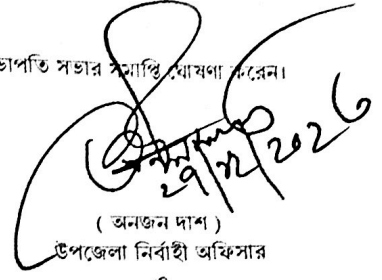 ভাপতি সভার সমাপ্তি ঘোষণা করেন।
২৭/১২/২০২৩
( অনজন দাশ )
উপজেলা নির্বাহী অফিসার